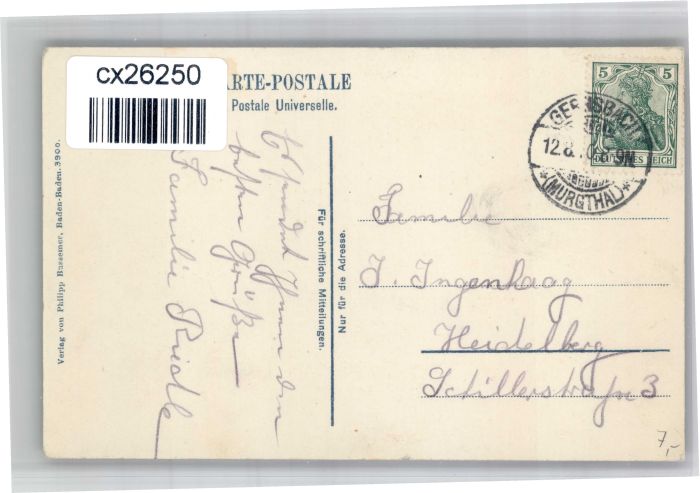 cx26250
ARTE-POSTALE
Postale Universelle.
Verlag von Philipp Bussemer, Baden-Baden. 3900.
Für schriftliche Mitteilungen.
Nur für die Adresse.
5 5
DEUTSCHES REICH
GERNSBACH
12.8.
9-10N.
*(MURGTHAL)*
Es sendet Ihnen den
besten Grüße
Familie Riedle
Familie
J. Ingenhaag
Heidelberg
Schillerstraße 3
7,-